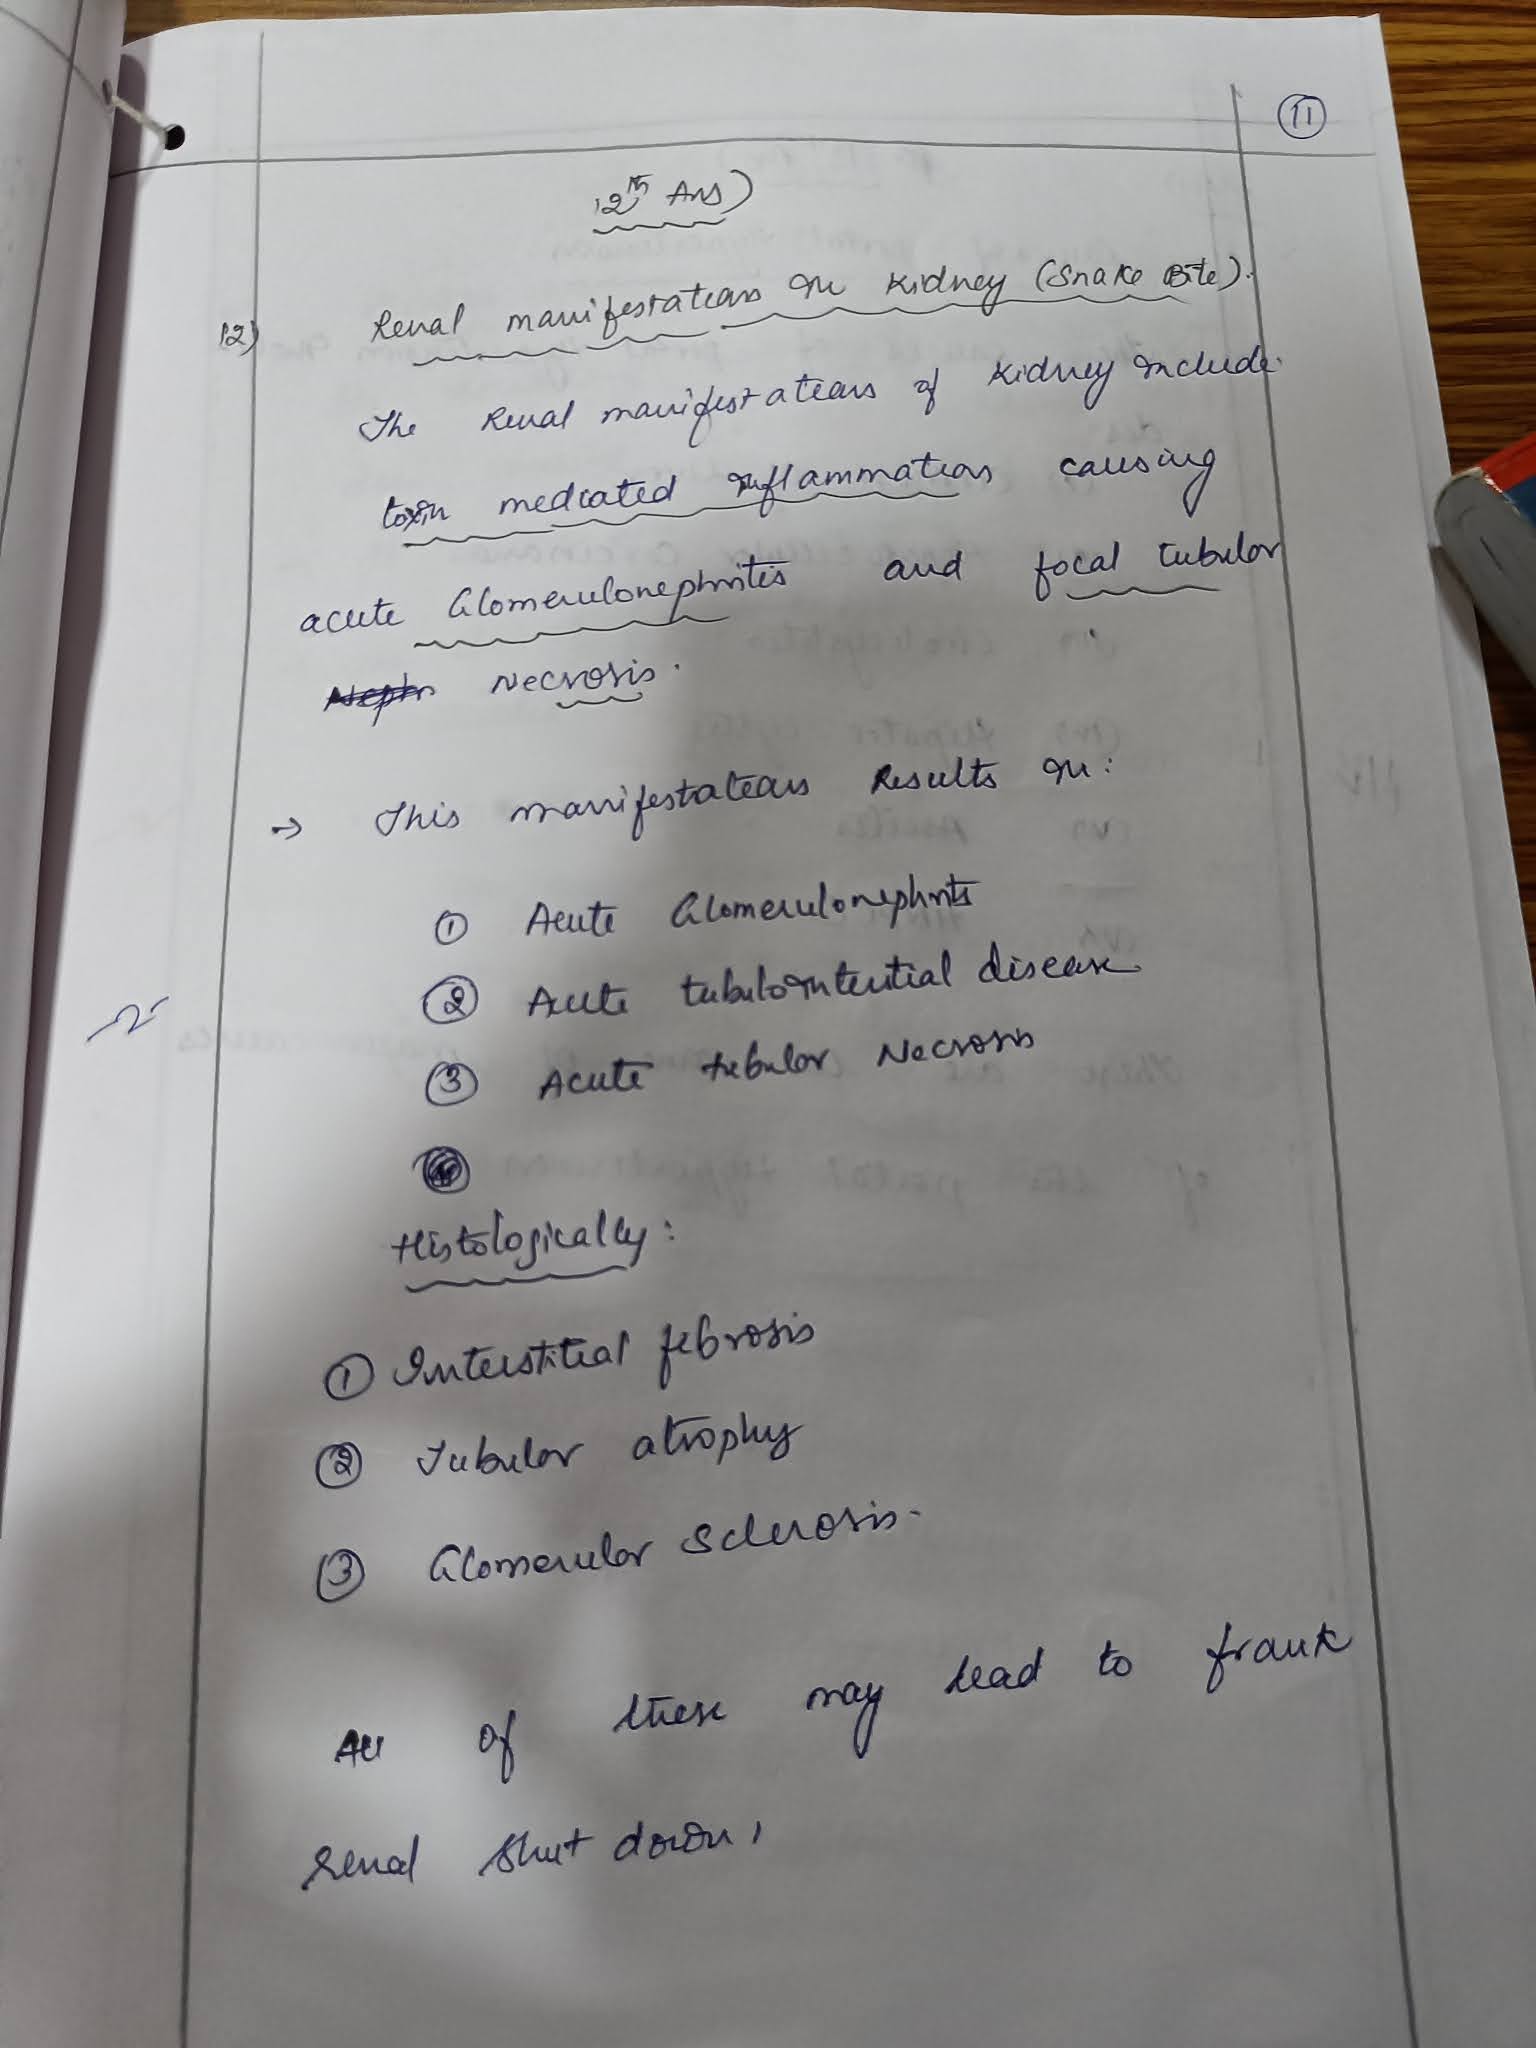 11
12th Ans)
12) Renal manifestations in Kidney (Snake Bite).
The Renal manifestations of Kidney include
toxin mediated inflammation causing
acute Glomerulonephritis and focal tubular
Necrosis.
→ This manifestations Results in:
① Acute Glomerulonephrits
② Acute tubulointertitial disease
③ Acute tubular Necrosis
Histologically:
① Interstitial fibrosis
② Tubular atrophy
③ Glomerular sclerosis.
All of these may lead to frank
renal shut down,